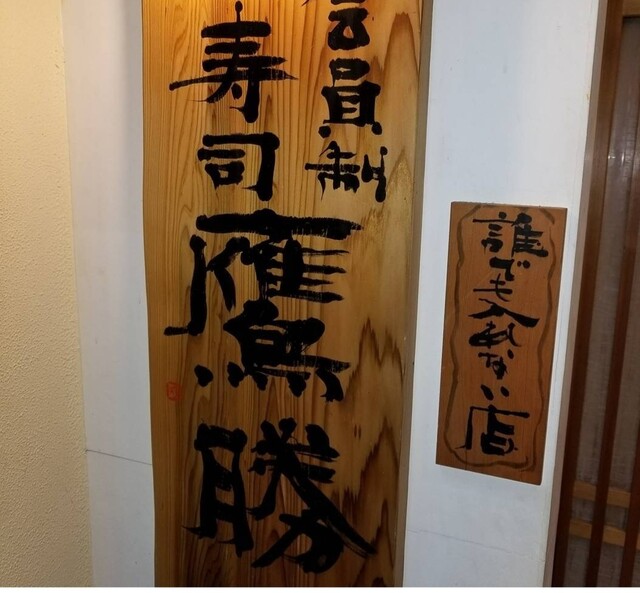 会員制
寿司
鷹勝
誰でも入れない店